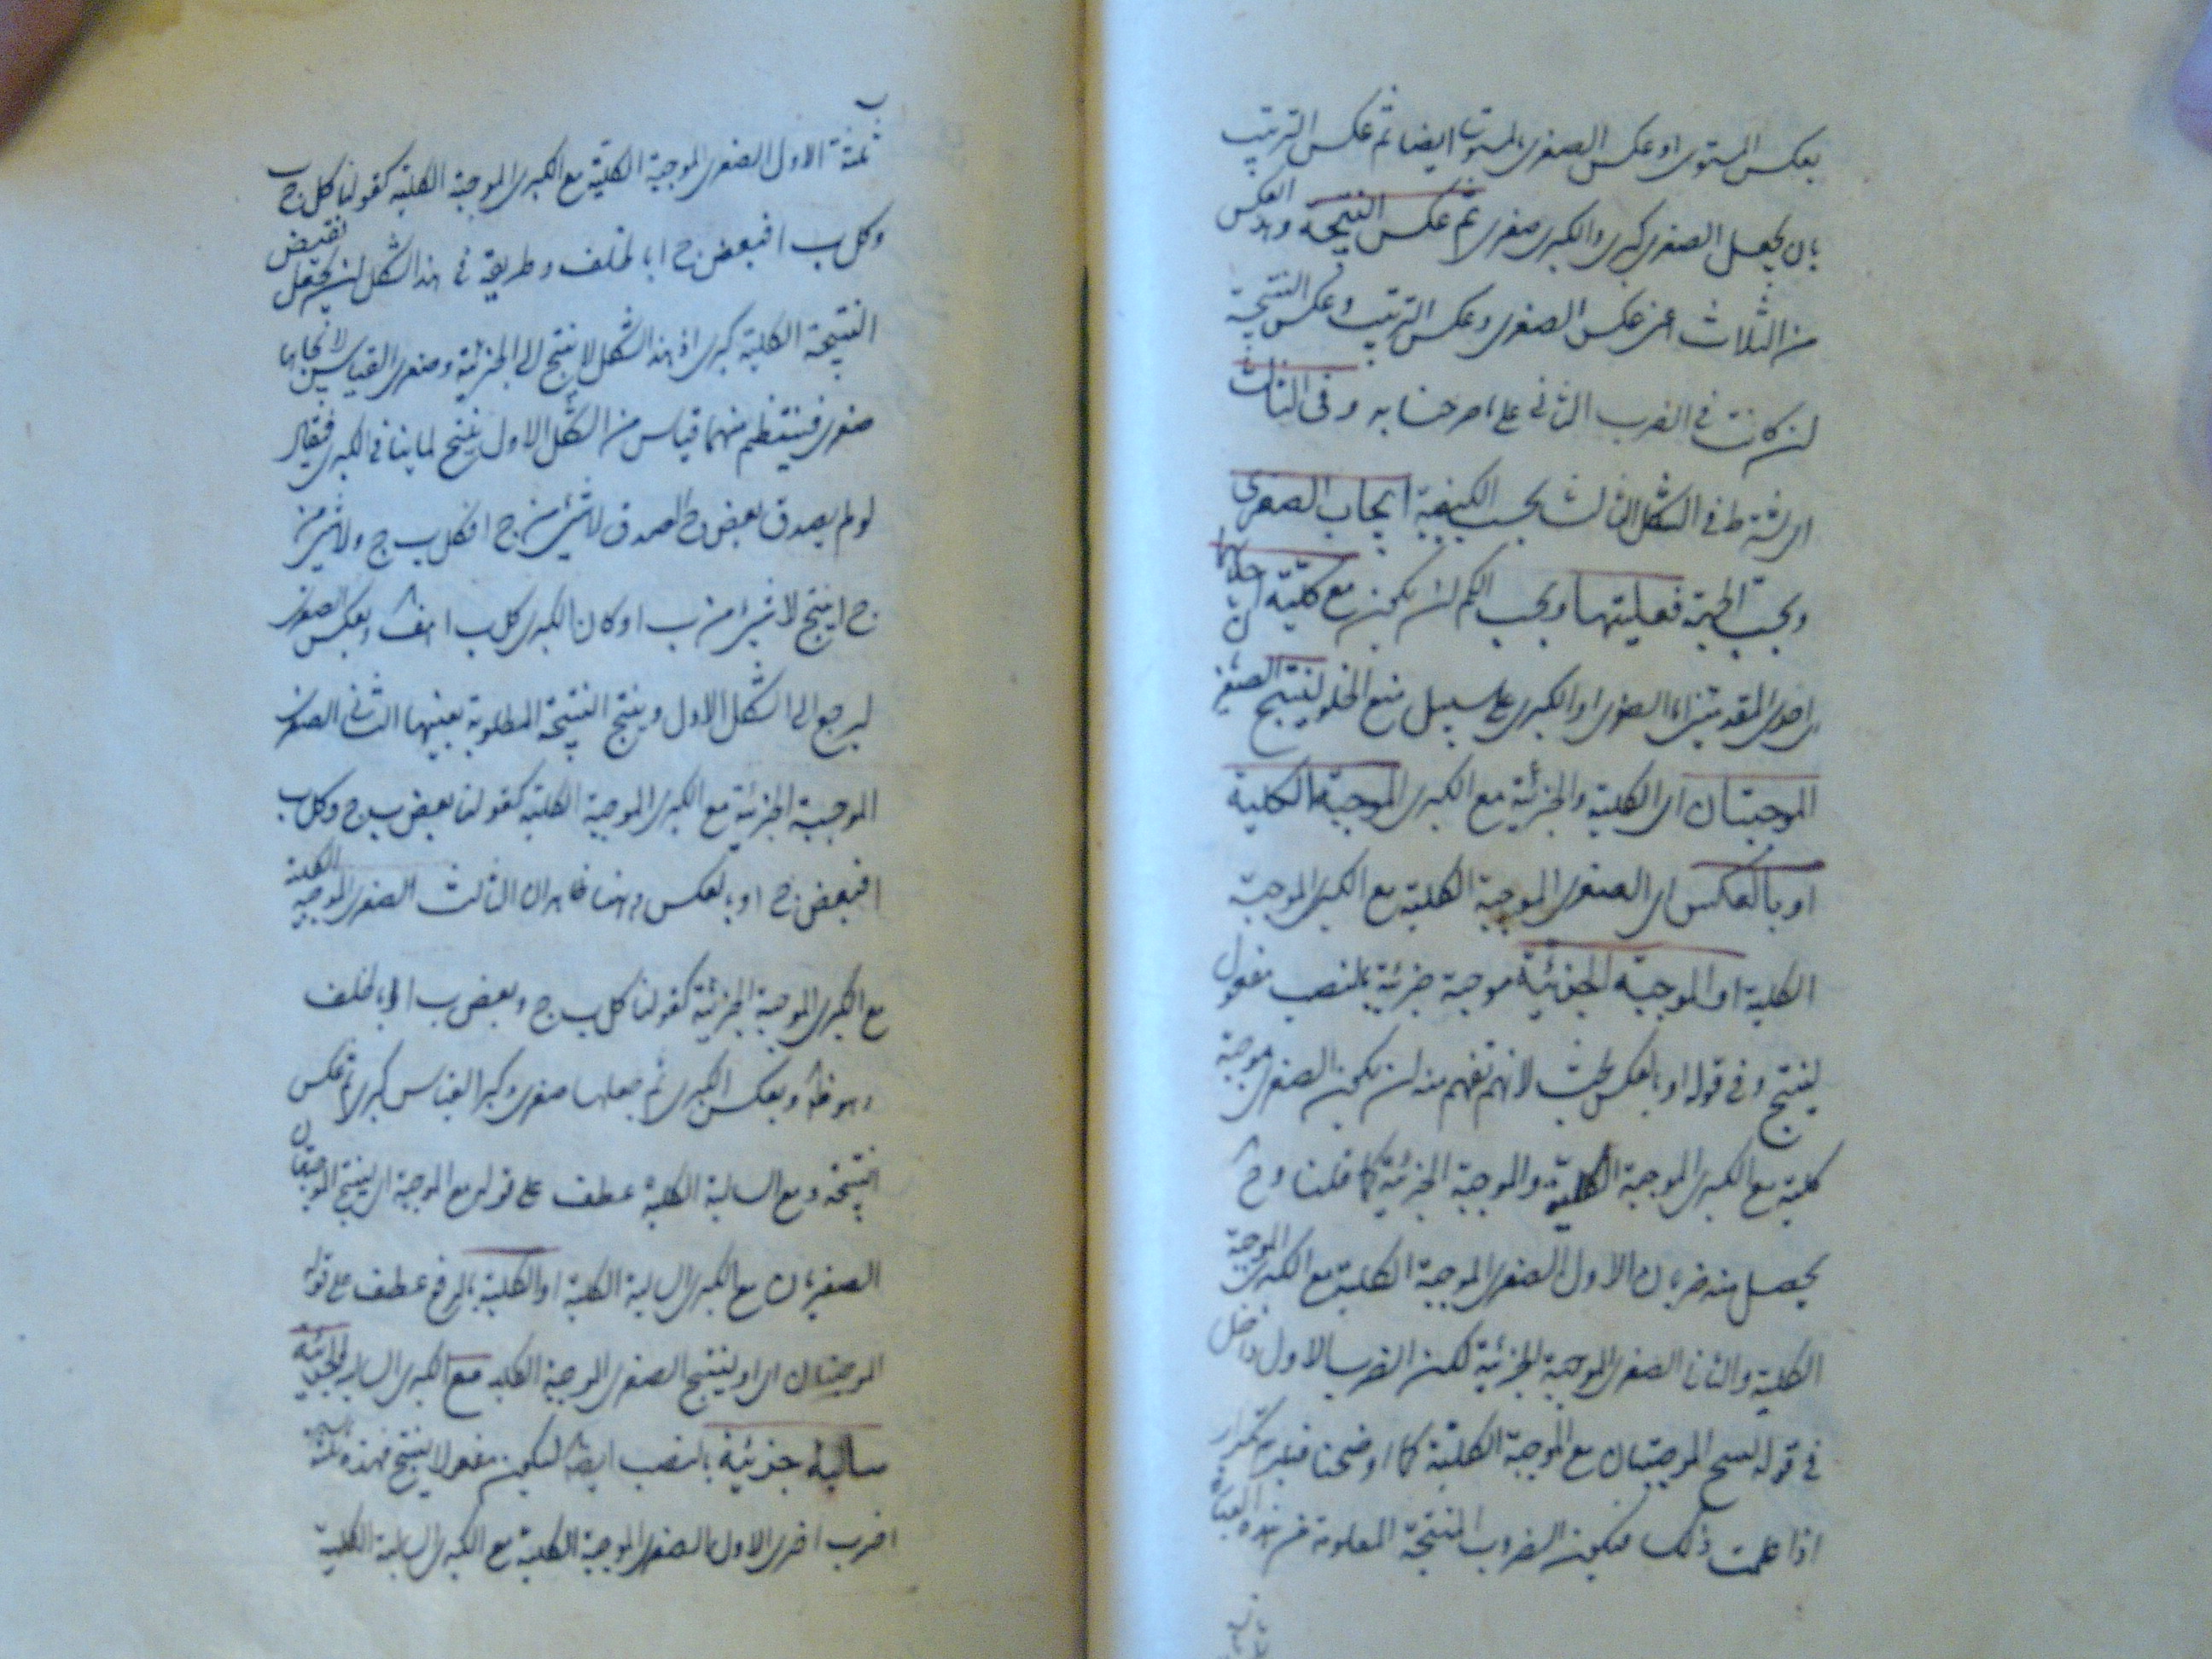 بعكس المستوى او عكس الصغرى بالمستوى ايضا ثم عكس الترتيب
بان يجعل الصغرى كبرى والكبرى صغرى ثم عكس النتيجة وهذا العكس
من الثلاث اعنى عكس الصغرى وعكس الترتيب وعكس النتيجة
ان كانت فى الضرب الثانى على ما صرحنا به وفى الثالث
اى شرط فى الشكل الثالث بحسب الكيفية ايجاب الصغرى
وبحسب الجهة فعليتها وبحسب الكم ان يكون مع كلية احديهما اى
احدى المقدمتين اى الصغرى او الكبرى على سبيل منع الخلو لينتج الصغرى
الموجبتان اى الكلية والجزئية مع الكبرى الموجبة الكلية
او بالعكس اى الصغرى الموجبة الكلية مع الكبرى الموجبة
الكلية او الموجبة الجزئية موجبة جزئية بالنصب مفعول
لينتج وفى قوله او بالعكس بحث لانهم تفهم منه ان يكون الصغرى موجبة
كلية مع الكبرى الموجبة الكلية والموجبة الجزئية كما قلنا وح
يحصل منه ضربان الاول الصغرى الموجبة الكلية مع الكبرى الموجبة
الكلية والثانى الصغرى الموجبة الجزئية لكن الضرب الاول داخل
فى قوله لينتج الموجبتان مع الموجبة الكلية كما اوضحنا فيلزم تكرار
اذا علمت ذلك فيكون الضروب المنتجة المعلومة من هذه العبارة
ثلثة الاول الصغرى الموجبة الكلية مع الكبرى الموجبة الكلية كقولنا كل ج ب
وكل ب ا فبعض ج ا بالخلف وطريقه فى هذا الشكل ان يجعل نقيض
النتيجة الكلية كبرى اذ هذا الشكل لا ينتج الا الجزئية وصغرى القياس لايجابها
صغرى فينتظم منهما قياس من الشكل الاول ينتج لما ينافى الكبرى فيقال
لو لم يصدق بعض ج ا لصدق لا شىء من ج ا فكل ب ج ولا شىء من
ج ا ينتج لا شىء من ب ا وكان الكبرى كل ب ا هف وبعكس الصغرى
ليرجع الى الشكل الاول وينتج النتيجة المطلوبة بعينها الثانى الصغرى
الموجبة الجزئية مع الكبرى الموجبة الكلية كقولنا بعض ب ج وكل ب
ا فبعض ج ا وبالعكس وهنا ظاهران الثالث الصغرى الموجبة الكلية
مع الكبرى الموجبة الجزئية كقولنا كل ب ج وبعض ب ا بالخلف
وهو ظاهر وبعكس الكبرى ثم جعلها صغرى وكبرى القياس كبرى ثم عكس
النتيجة ومع السالبة الكلية عطف على قوله مع الموجبة اى لينتج الموجبتان
الصغريان مع الكبرى السالبة الكلية او الكلية بالرفع عطف على قوله
الموجبتان اى او لينتج الصغرى الموجبة الكلية مع الكبرى السالبة الجزئية
سالبة جزئية بالنصب ايضا ليكون مفعولا لينتج فهذه ثلثة
اضرب اخرى الاول الصغرى الموجبة الكلية مع الكبرى السالبة الكلية